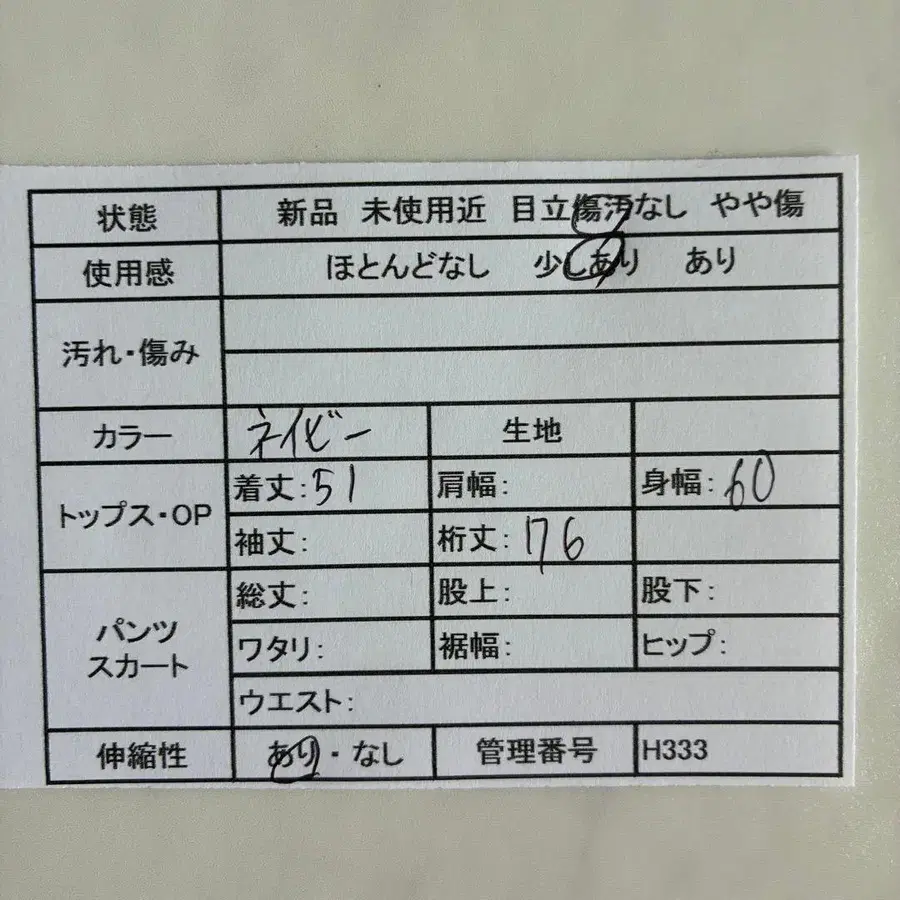 状態 新品 未使用近 目立傷汚なし やや傷
使用感 ほとんどなし 少しあり あり
汚れ・傷み
カラー ネイビー 生地
トップス・OP
着丈:51 肩幅: 身幅:60
袖丈: 裄丈:76
パンツ
スカート
総丈: 股上: 股下:
ワタリ: 裾幅: ヒップ:
ウエスト:
伸縮性 あり・なし 管理番号 H333